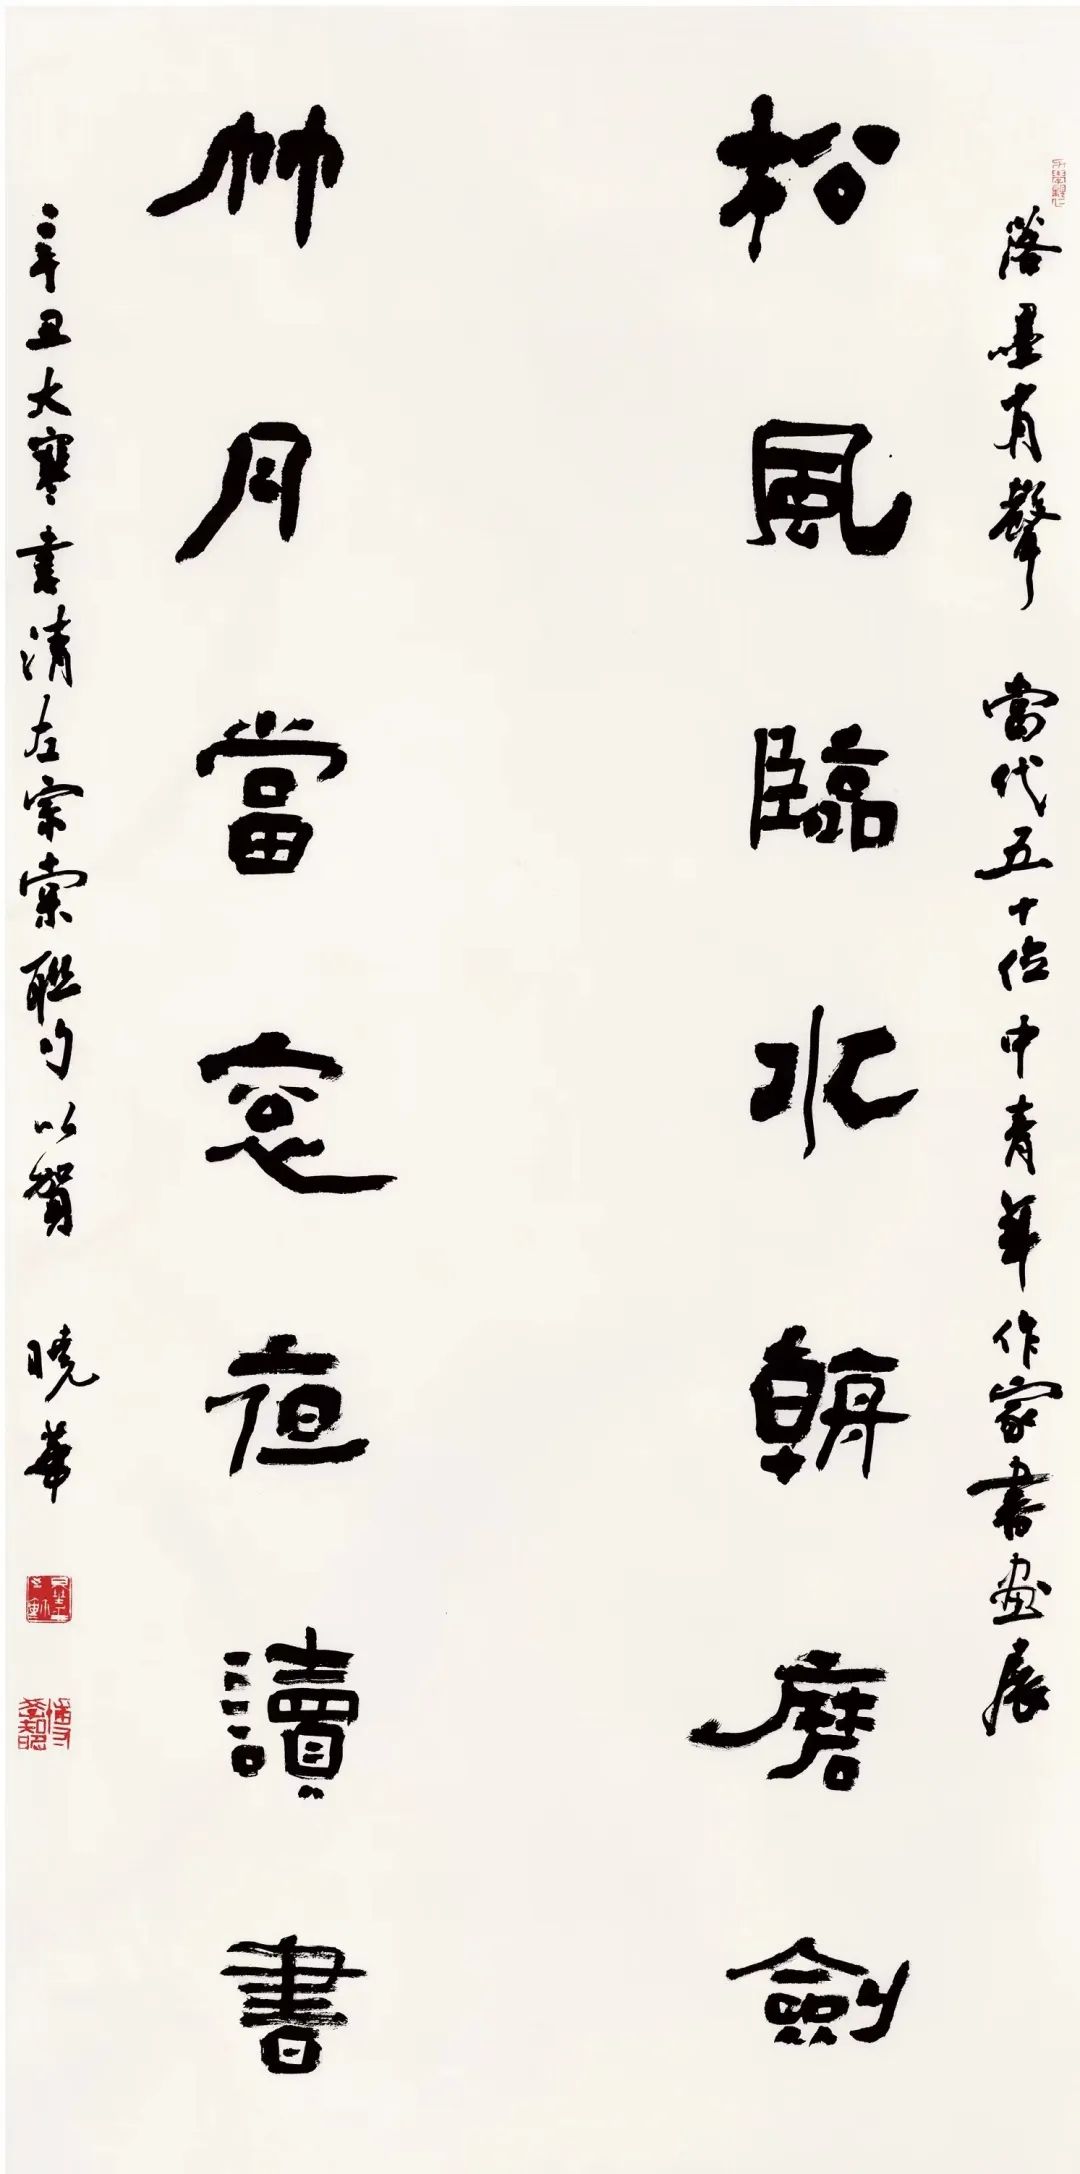 落墨有聲 當代五十位中青年作家書画展
松風臨水朝磨劍
竹月當窓夜讀書
辛丑大寒書清左宗棠聯句以賀 曉華